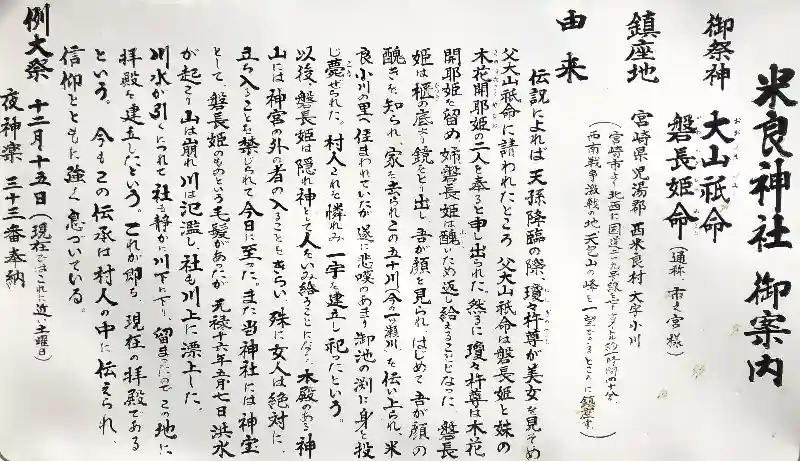 米良神社 御案内
御祭神 大山祇命
磐長姫命（通称 市き宮様）
鎮座地 宮崎県児湯郡西米良村大字小川
西南戦争激戦の地天包山の峰を一望できるところに鎮座す
由来
伝説によれば 天孫降臨の際、瓊々杵尊が美女を見そめ
父大山祇命に請われたところ 父大山祇命は磐長姫と妹の
木花開耶姫の二人を奉ると申し出られた。然るに瓊々杵尊は木花
開耶姫を留め 姉磐長姫は醜いため返し給えることになった、磐長
姫は櫃の底より鏡をとり出し、吾が顔を見られ、はじめて吾が顔の
醜きを知られ、家を去られこの五十川（今一ッ瀬川）を伝い上られ、米
良小川の里へ住まわれていたが 遂に悲嘆のあまり御池の渕に身を投
じ薨ぜられた。村人これを憐れみ 一宇を建立し祀たという。
以後、磐長姫は隠れ神として人をいみ給うことになり 本殿のある神
山には神官の外の者の入ることをきらい、殊に女人は絶対に、
立ち入ることを禁じられて今日に至った。また当神社には神宝
として、磐長姫のものとう毛髪があったが 元禄十六年五月七日洪水
が起こり山は崩れ川は氾濫し、社も川上に漂上した。
川水が引くにつれて社も静かに川下に下り、留まったのでこの地に
拝殿を建立したという。これが即ち 現在の拝殿である
という。今もこの伝承は村人の中に伝えられ、
信仰とともに強く息づいている。
例大祭 十二月十五日（現在ではこれに近い土曜日）
夜神楽 三十三番奉納